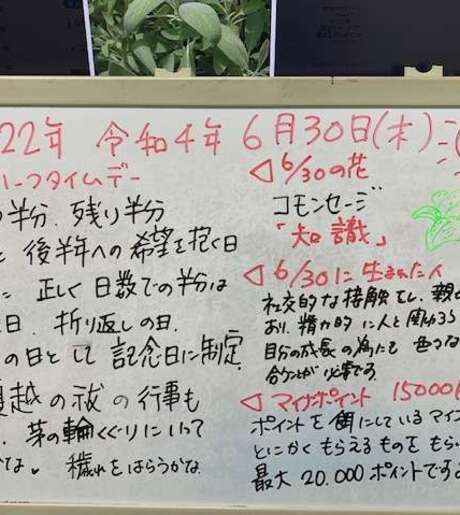 22年 令和4年 6月30日(木)
ハーフタイムデー
半分、残り半分
後半年への希望を抱く日
正しく日数での半分は
日、折り返しの日、
の日として記念日に制定
越の祓の行事も
茅の輪くぐりにいって
かな、穢れをはらうかな
◁6/30の花
コモンセージ
「知識」
◁6/30に生まれた人
社交的な接触をし、親
おり、精力的に人と関わろう
自分の成長の為にも
合うことが必要です。
◁マイナポイント 15000
ポイントを にしているマイ
とにかくもらえるものをもら
最大 20.000ポイントですよ